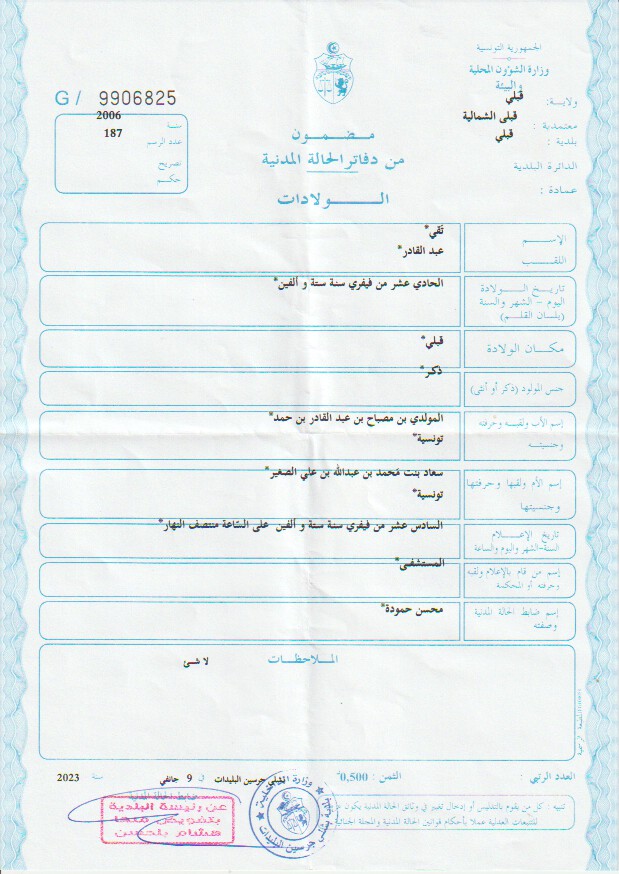 الجمهورية التونسية
وزارة الشؤون المحلية
والبيئة
ولايـة: قبلي
معتمدية : قبلى الشمالية
بلدية : قبلي
الدائرة البلدية
عمادة :
G / 9906825
سنة 2006
عدد الرسم 187
تصريح
حكم
مضمون
من دفاتر الحالة المدنية
الولادات
الإسم تقي*
اللقب عبد القادر*
تاريخ الولادة الحادي عشر من فيفري سنة ستة و ألفين*
اليوم - الشهر والسنة
(بلسان القلم)
مكان الولادة قبلي*
جنس المولود (ذكر أو أنثى) ذكر*
إسم الأب ولقبه وحرفته المولدي بن مصباح بن عبد القادر بن حمد*
وجنسيته تونسية*
إسم الأم ولقبها وحرفتها سعاد بنت محمد بن عبدالله بن علي الصغير*
وجنسيتها تونسية*
تاريخ الإعلام السادس عشر من فيفري سنة ستة و ألفين على السّاعة منتصف النهار*
السنة-الشهر واليوم والساعة
إسم من قام بالإعلام ولقبه المستشفى*
وحرفته أو المحكمة
إسم ضابط الحالة المدنية محسن حمودة*
وصفته
الملاحظات
لا شئ
العدد الرتبي : الثمن : 0,500 جرسين البليدات في 9 جانفي سنة 2023
ضابط الحالة المدنية
تنبيه : كل من يقوم بالتدليس أو إدخال تغيير في وثائق الحالة المدنية يكون
للتتبعات العدلية عملا بأحكام قوانين الحالة المدنية والمجلة الجنائية
عن رئيسة البلدية
بتفويض منها
هشام بلحسن
وزارة المحلية
جرسين البليدات